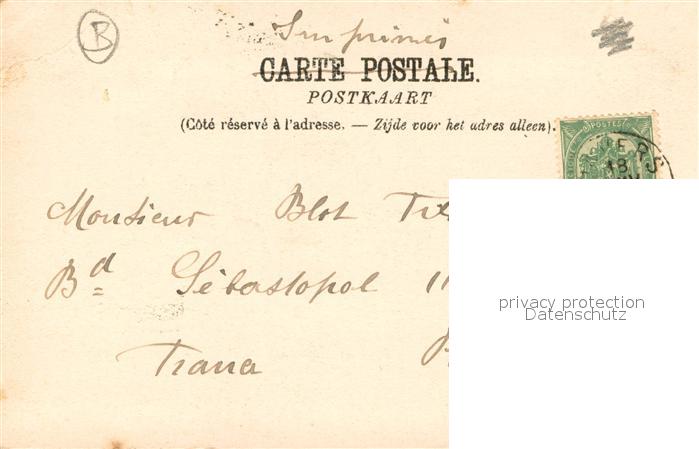 B
Imprimés
CARTE POSTALE.
POSTKAART
(Côté réservé à l'adresse. — Zijde voor het adres alleen).
POSTE
ERS
18
Monsieur Blot
Bd Sébastopol 11
privacy protection
Datenschutz